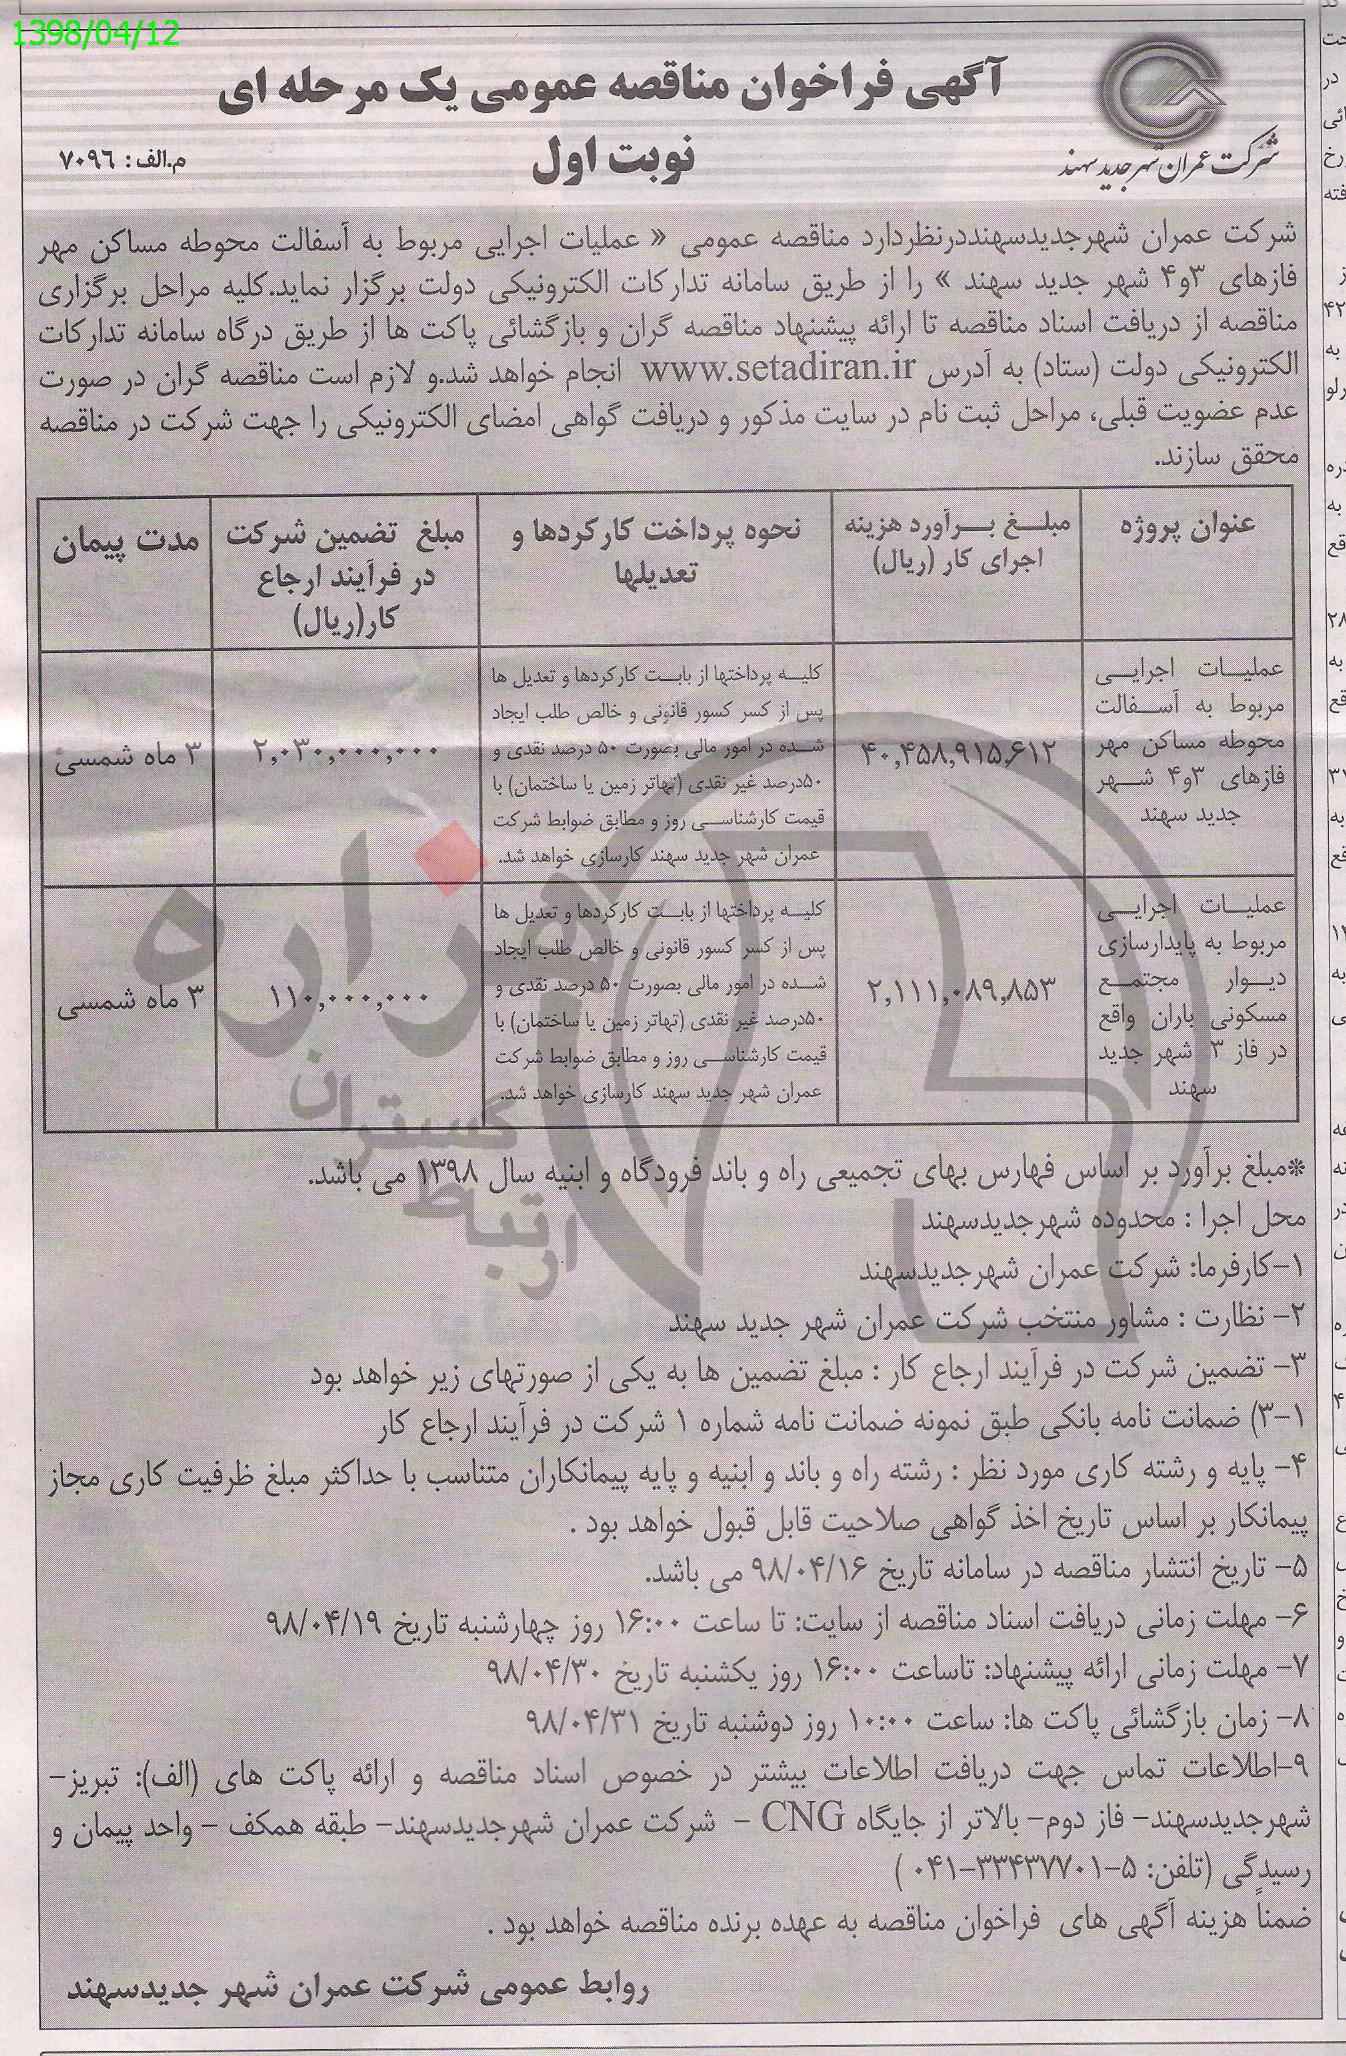 1398/04/12
آگهی فراخوان مناقصه عمومی یک مرحله ای
نوبت اول
م.الف: ۷۰۹۶
شرکت عمران شهر جدید سهند
شرکت عمران شهرجدیدسهنددرنظردارد مناقصه عمومی « عملیات اجرایی مربوط به آسفالت محوطه مساکن مهر
فازهای ۳و۴ شهر جدید سهند » را از طریق سامانه تدارکات الکترونیکی دولت برگزار نماید.کلیه مراحل برگزاری
مناقصه از دریافت اسناد مناقصه تا ارائه پیشنهاد مناقصه گران و بازگشائی پاکت ها از طریق درگاه سامانه تدارکات
الکترونیکی دولت (ستاد) به آدرس www.setadiran.ir انجام خواهد شد.و لازم است مناقصه گران در صورت
عدم عضویت قبلی، مراحل ثبت نام در سایت مذکور و دریافت گواهی امضای الکترونیکی را جهت شرکت در مناقصه
محقق سازند.
عنوان پروژه
مبلغ برآورد هزینه
اجرای کار (ریال)
نحوه پرداخت کارکردها و
تعدیلها
مبلغ تضمین شرکت
در فرآیند ارجاع
کار(ریال)
مدت پیمان
عملیات اجرایی
مربوط به آسفالت
محوطه مساکن مهر
فازهای ۳و۴ شهر
جدید سهند
۴۰,۴۵۸,۹۱۵,۶۱۲
کلیه پرداختها از بابت کارکردها و تعدیل ها
پس از کسر کسور قانونی و خالص طلب ایجاد
شده در امور مالی بصورت ۵۰ درصد نقدی و
۵۰درصد غیر نقدی (تهاتر زمین یا ساختمان) با
قیمت کارشناسی روز و مطابق ضوابط شرکت
عمران شهر جدید سهند کارسازی خواهد شد.
۲,۰۳۰,۰۰۰,۰۰۰
۳ ماه شمسی
عملیات اجرایی
مربوط به پایدارسازی
دیوار مجتمع
مسکونی باران واقع
در فاز ۳ شهر جدید
سهند
۲,۱۱۱,۰۸۹,۸۵۳
کلیه پرداختها از بابت کارکردها و تعدیل ها
پس از کسر کسور قانونی و خالص طلب ایجاد
شده در امور مالی بصورت ۵۰ درصد نقدی و
۵۰درصد غیر نقدی (تهاتر زمین یا ساختمان) با
قیمت کارشناسی روز و مطابق ضوابط شرکت
عمران شهر جدید سهند کارسازی خواهد شد.
۱۱۰,۰۰۰,۰۰۰
۳ ماه شمسی
هزاره
گستران
ارتباط
*مبلغ برآورد بر اساس فهارس بهای تجمیعی راه و باند فرودگاه و ابنیه سال ۱۳۹۸ می باشد.
محل اجرا : محدوده شهرجدیدسهند
۱-کارفرما: شرکت عمران شهرجدیدسهند
۲- نظارت : مشاور منتخب شرکت عمران شهر جدید سهند
۳- تضمین شرکت در فرآیند ارجاع کار : مبلغ تضمین ها به یکی از صورتهای زیر خواهد بود
۳-۱) ضمانت نامه بانکی طبق نمونه ضمانت نامه شماره ۱ شرکت در فرآیند ارجاع کار
۴- پایه و رشته کاری مورد نظر : رشته راه و باند و ابنیه و پایه پیمانکاران متناسب با حداکثر مبلغ ظرفیت کاری مجاز
پیمانکار بر اساس تاریخ اخذ گواهی صلاحیت قابل قبول خواهد بود .
۵- تاریخ انتشار مناقصه در سامانه تاریخ ۹۸/۰۴/۱۶ می باشد.
۶- مهلت زمانی دریافت اسناد مناقصه از سایت: تا ساعت ۱۶:۰۰ روز چهارشنبه تاریخ ۹۸/۰۴/۱۹
۷- مهلت زمانی ارائه پیشنهاد: تاساعت ۱۶:۰۰ روز یکشنبه تاریخ ۹۸/۰۴/۳۰
۸- زمان بازگشائی پاکت ها: ساعت ۱۰:۰۰ روز دوشنبه تاریخ ۹۸/۰۴/۳۱
۹-اطلاعات تماس جهت دریافت اطلاعات بیشتر در خصوص اسناد مناقصه و ارائه پاکت های (الف): تبریز-
شهرجدیدسهند- فاز دوم- بالاتر از جایگاه CNG - شرکت عمران شهرجدیدسهند- طبقه همکف - واحد پیمان و
رسیدگی (تلفن: ۵-۳۳۴۳۷۷۰۱-۰۴۱ )
ضمناً هزینه آگهی های فراخوان مناقصه به عهده برنده مناقصه خواهد بود .
روابط عمومی شرکت عمران شهر جدیدسهند